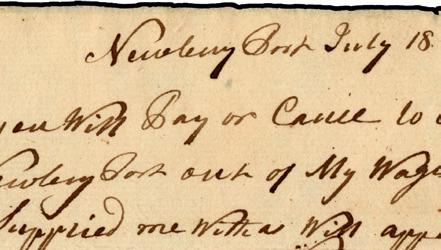 Newbery Port July 18
you Will Pay or Cause to
ewbery Port out of My Wage
Supplied me With as Will app